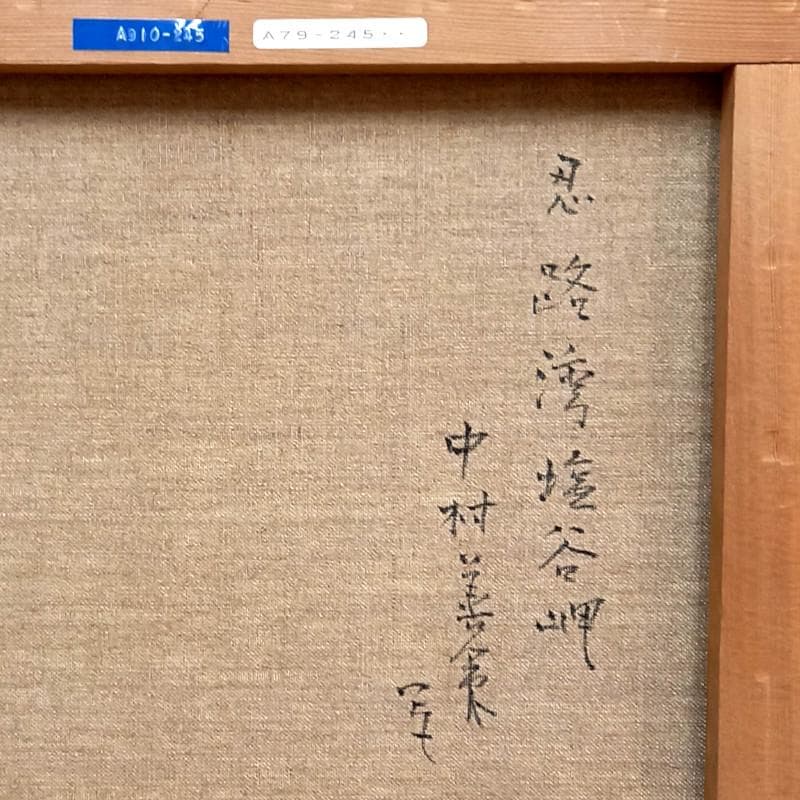 A910-245
A79-245··
忍路湾塩谷岬
中村善策
写